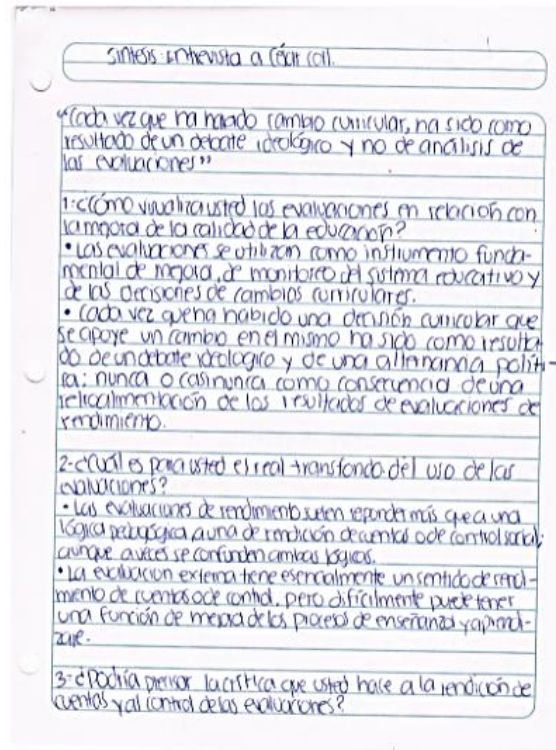 Síntesis: Entrevista a César Coll.
"Cada vez que ha habido cambio curricular, ha sido como
resultado de un debate ideológico y no de análisis de
las evaluaciones"
1-¿Cómo visualiza usted las evaluaciones en relación con
la mejora de la calidad de la educación?
• Las evaluaciones se utilizan como instrumento funda-
mental de mejora, de monitoreo del sistema educativo y
de las decisiones de cambios curriculares.
• Cada vez que ha habido una decisión curricular que
se apoye un cambio en el mismo ha sido como resulta-
do de un debate ideologico y de una alternancia políti-
ca: nunca o casi nunca como consecuencia de una
retroalimentación de los resultados de evaluaciones de
rendimiento.
2-¿Cuál es para usted el real transfondo del uso de las
evaluaciones?
• Las evaluaciones de rendimiento suelen reponder más que a una
lógica pedagógica a una de rendición de cuentas o de control social;
aunque a veces se confunden ambas lógicas.
• La evaluacion externa tiene esencialmente un sentido de rendi-
miento de cuentas o de control, pero difícilmente puede tener
una función de mejora de los procesos de enseñanza y aprendi-
zaje.
3-¿Podría precisar la crítica que usted hace a la rendición de
cuentas y al control de las evaluaciones?